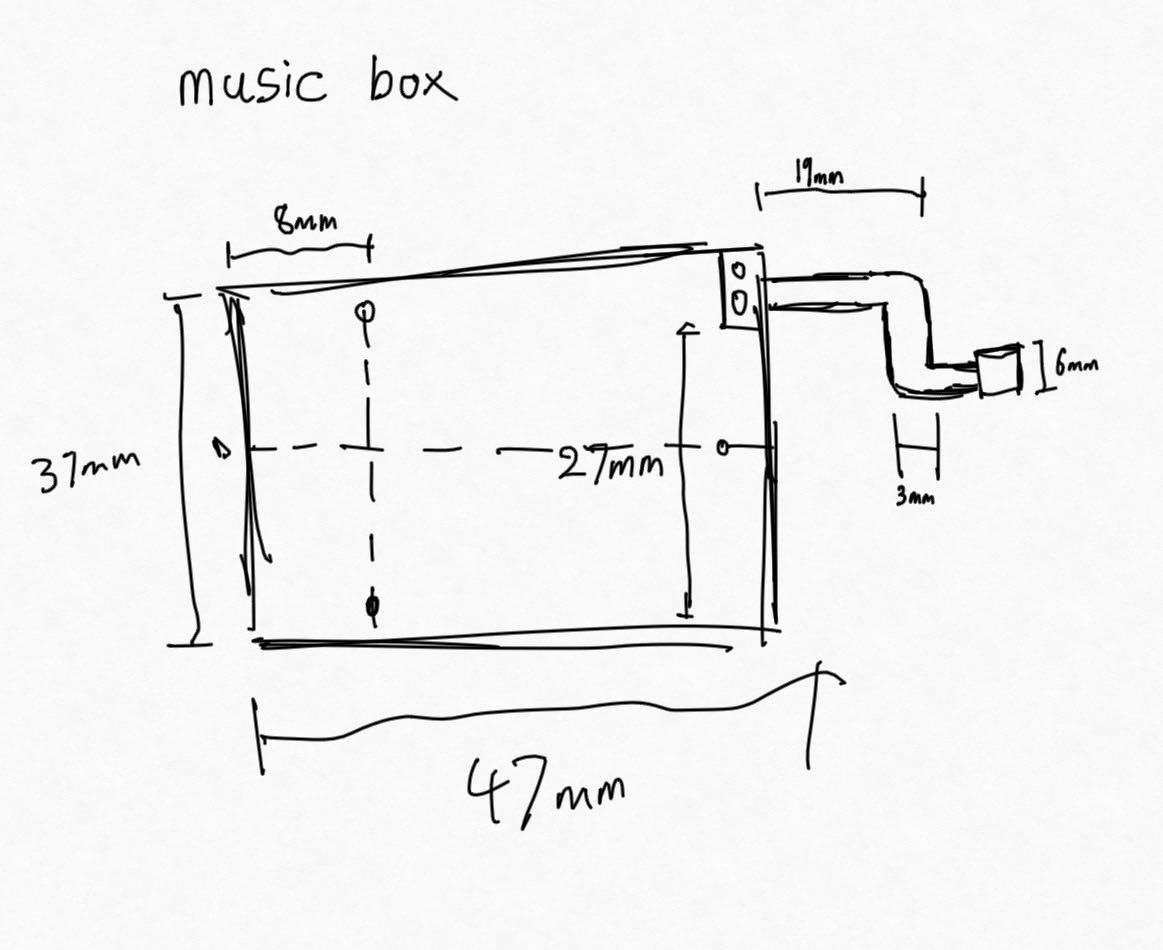 music box
19mm
8mm
6mm
37mm
27mm
3mm
47mm